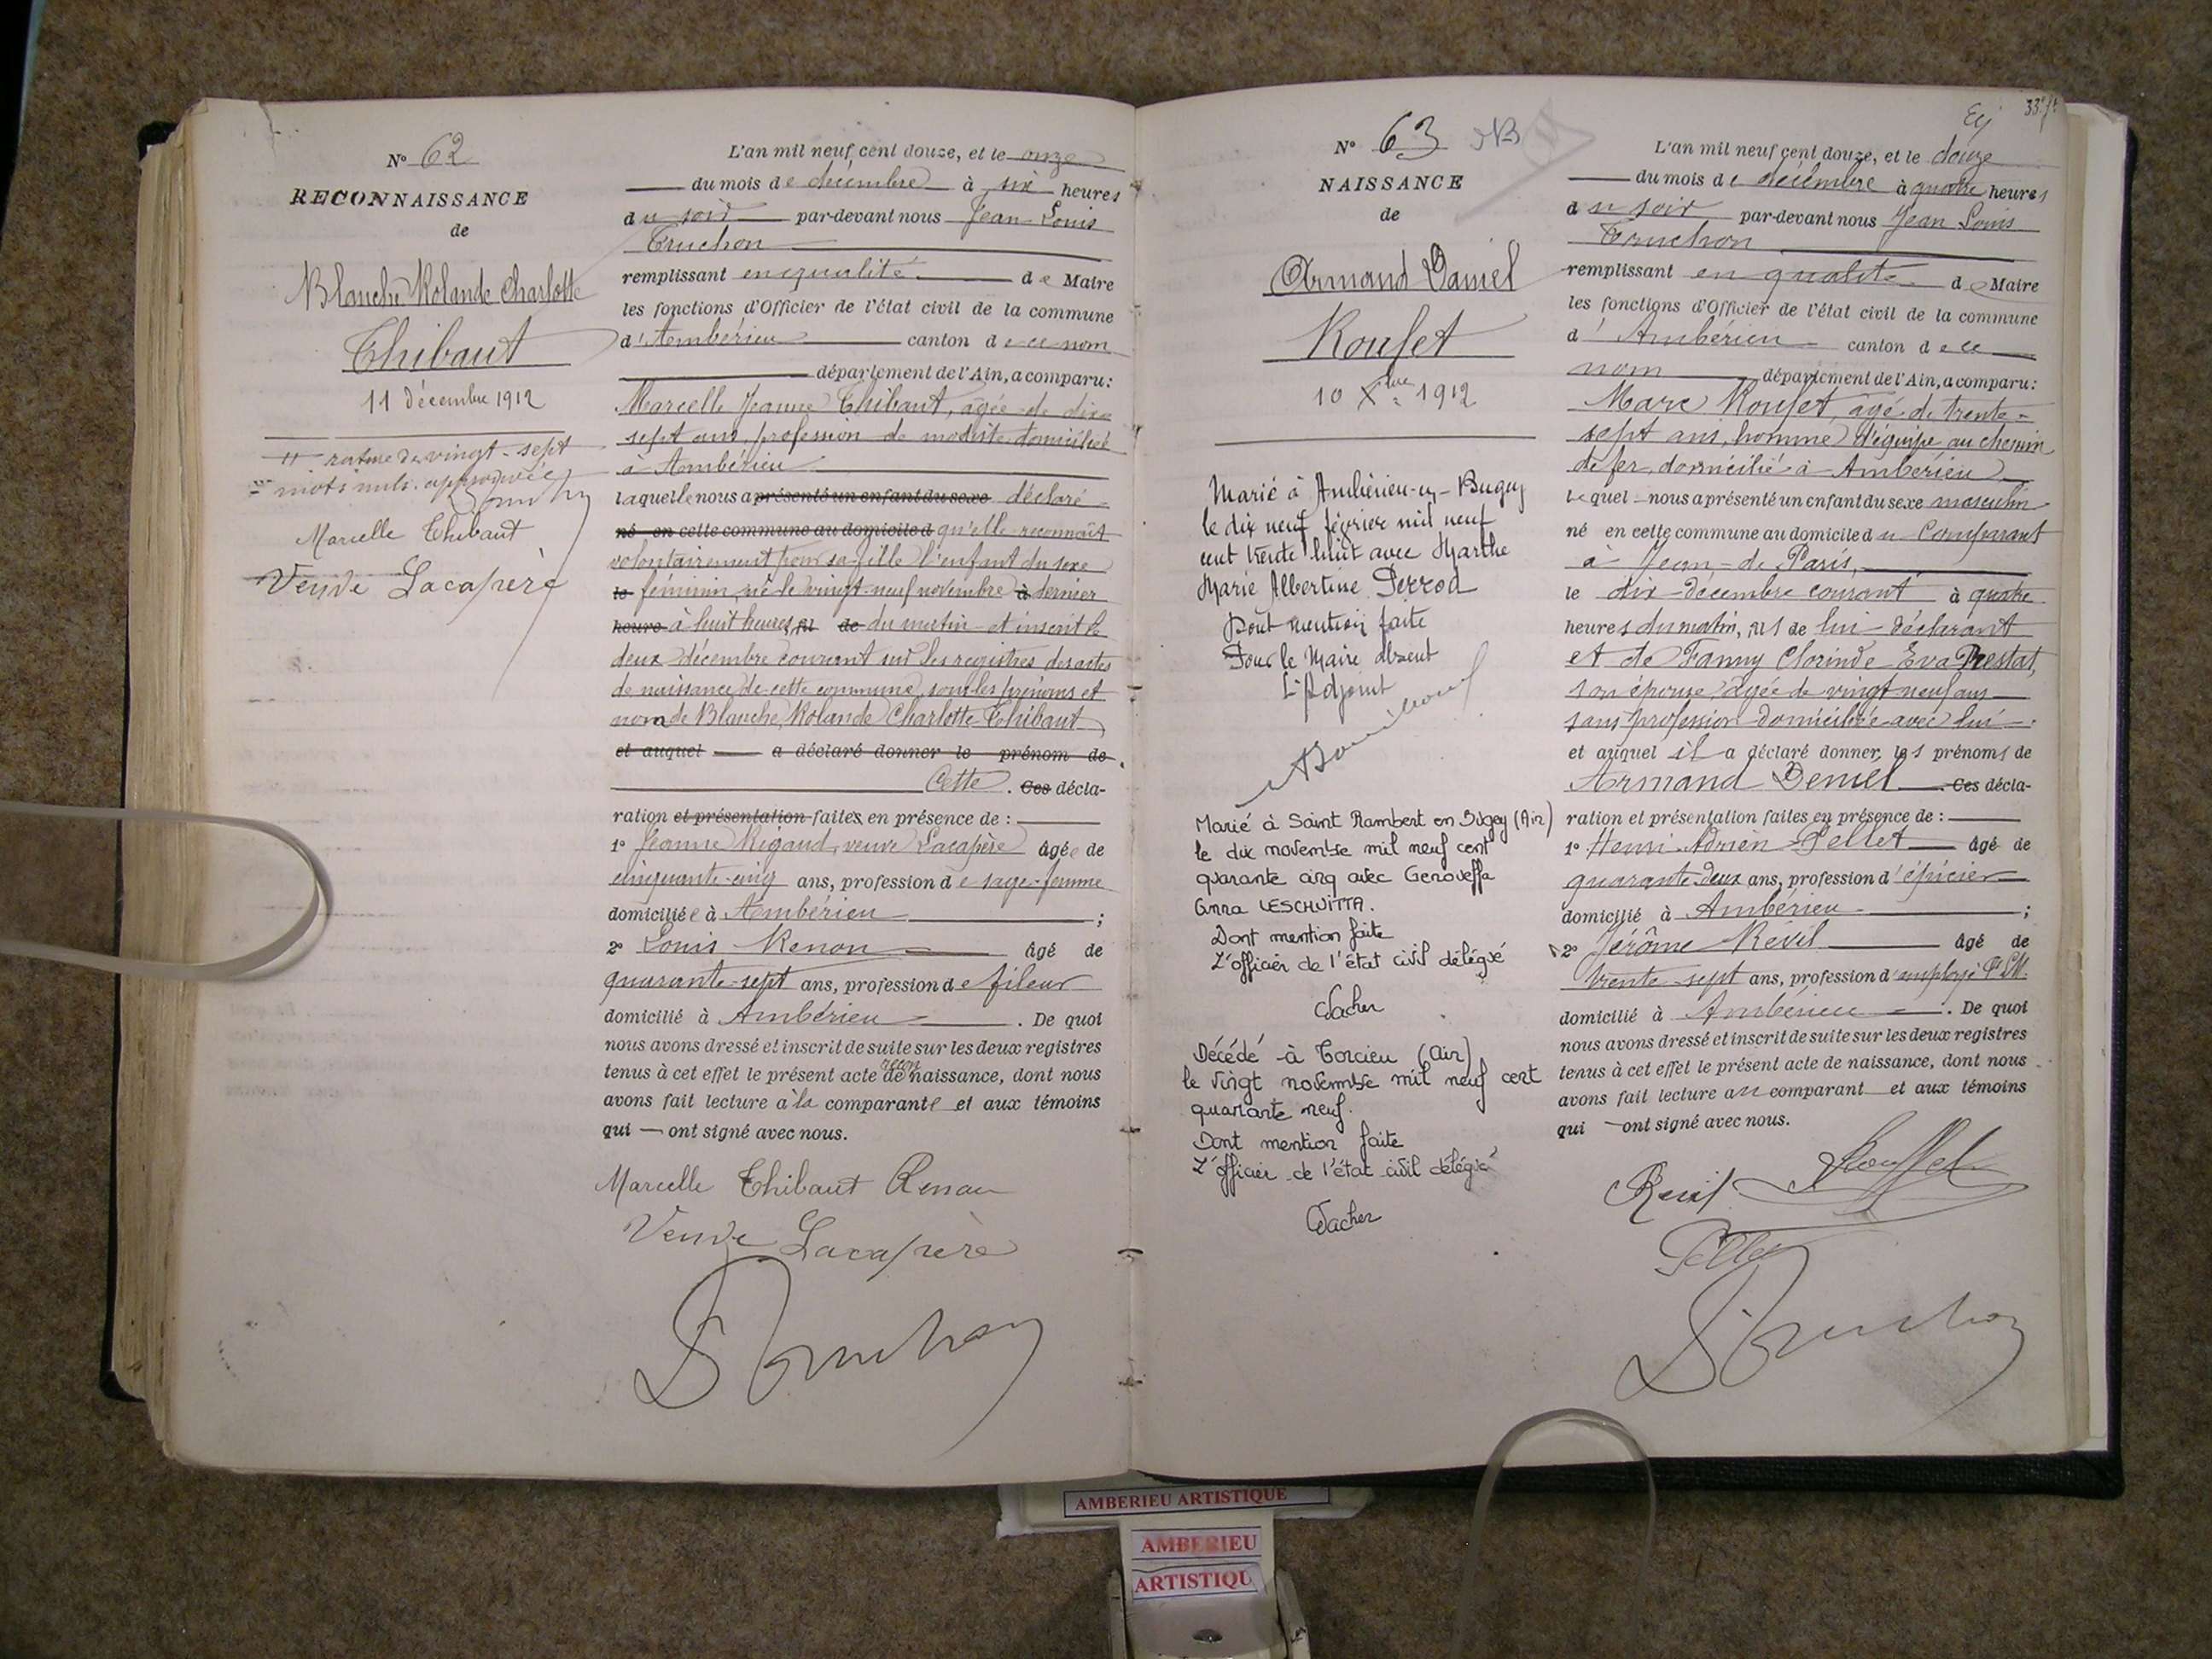 N° 62
RECONNAISSANCE
de
Blanche Rolande Charlotte
Thibaut
11 décembre 1912
rature de vingt-sept
mots nuls approuvée
Marcelle Thibaut
Veuve Lacapère
L'an mil neuf cent douze, et le onze
du mois de décembre à six heures
du soir par-devant nous Jean Louis
Truchon
remplissant en qualité de Maire
les fonctions d'Officier de l'état civil de la commune
d'Ambérieu canton de ce nom
département de l'Ain, a comparu:
Marcelle Jeanne Thibaut, âgée de dix-
sept ans, profession de modiste domiciliée
à Ambérieu
laquelle nous a présenté un enfant du sexe déclaré
né en cette commune au domicile d qu'elle reconnaît
volontairement pour sa fille l'enfant du sexe
le féminin, né le vingt-neuf novembre à dernier
heure à huit heures, fil de du matin et inscrit le
deux décembre courant sur les registres des actes
de naissance de cette commune, sous les prénoms et
nom de Blanche, Rolande Charlotte Thibaut
et auquel a déclaré donner le prénom de
Cette. Ces décla-
ration et présentation faites en présence de :
1° Jeanne Rigaud, veuve Lacapère âgée de
cinquante-cinq ans, profession de sage-femme
domiciliée à Ambérieu ;
2° Louis Renon âgé de
quarante-sept ans, profession de fileur
domicilié à Ambérieu . De quoi
nous avons dressé et inscrit de suite sur les deux registres
tenus à cet effet le présent acte de naissance, dont nous
avons fait lecture à la comparante et aux témoins
qui ont signé avec nous.
Marcelle Thibaut Renon
Veuve Lacapère
Truchon
33
N° 63
NAISSANCE
de
Armand Daniel
Rouset
10 Xbre 1912
Marié à Ambérieu-en-Bugey
le dix neuf février mil neuf
cent trente huit avec Marthe
Marie Albertine Perrod
Dont mention faite
Pour le Maire absent
L'Adjoint
Marié à Saint Rambert en Bugey (Ain)
le dix novembre mil neuf cent
quarante cinq avec Genoveffa
Anna LESCHUITTA.
Dont mention faite
L'officier de l'état civil délégué
Vacher
Décédé à Torcieu (Ain)
le vingt novembre mil neuf cent
quarante neuf.
Dont mention faite
L'officier de l'état civil délégué
Vacher
L'an mil neuf cent douze, et le douze
du mois de décembre à quatre heures
du soir par-devant nous Jean Louis
Truchon
remplissant en qualité de Maire
les fonctions d'Officier de l'état civil de la commune
d'Ambérieu canton de ce
nom département de l'Ain, a comparu:
Marc Rouset, âgé de trente-
sept ans, homme d'équipe au chemin
de fer, domicilié à Ambérieu
Lequel nous a présenté un enfant du sexe masculin
né en cette commune au domicile du comparant
à Jean-de-Paris,
le dix décembre courant à quatre
heures du matin, fils de lui déclarant
et de Fanny Clorinde Eva Prestat,
son épouse âgée de vingt neuf ans
sans profession domiciliée avec lui
et auquel il a déclaré donner les prénoms de
Armand Deniel . Ces décla-
ration et présentation faites en présence de :
1° Henri Adrien Pellet âgé de
quarante-deux ans, profession d'épicier
domicilié à Ambérieu ;
2° Jérôme Revil âgé de
trente-sept ans, profession d'employé P.L.M.
domicilié à Ambérieu . De quoi
nous avons dressé et inscrit de suite sur les deux registres
tenus à cet effet le présent acte de naissance, dont nous
avons fait lecture au comparant et aux témoins
qui ont signé avec nous.
Revil Rousset
Pellet
Truchon
AMBERIEU ARTISTIQUE
AMBERIEU
ARTISTIQU